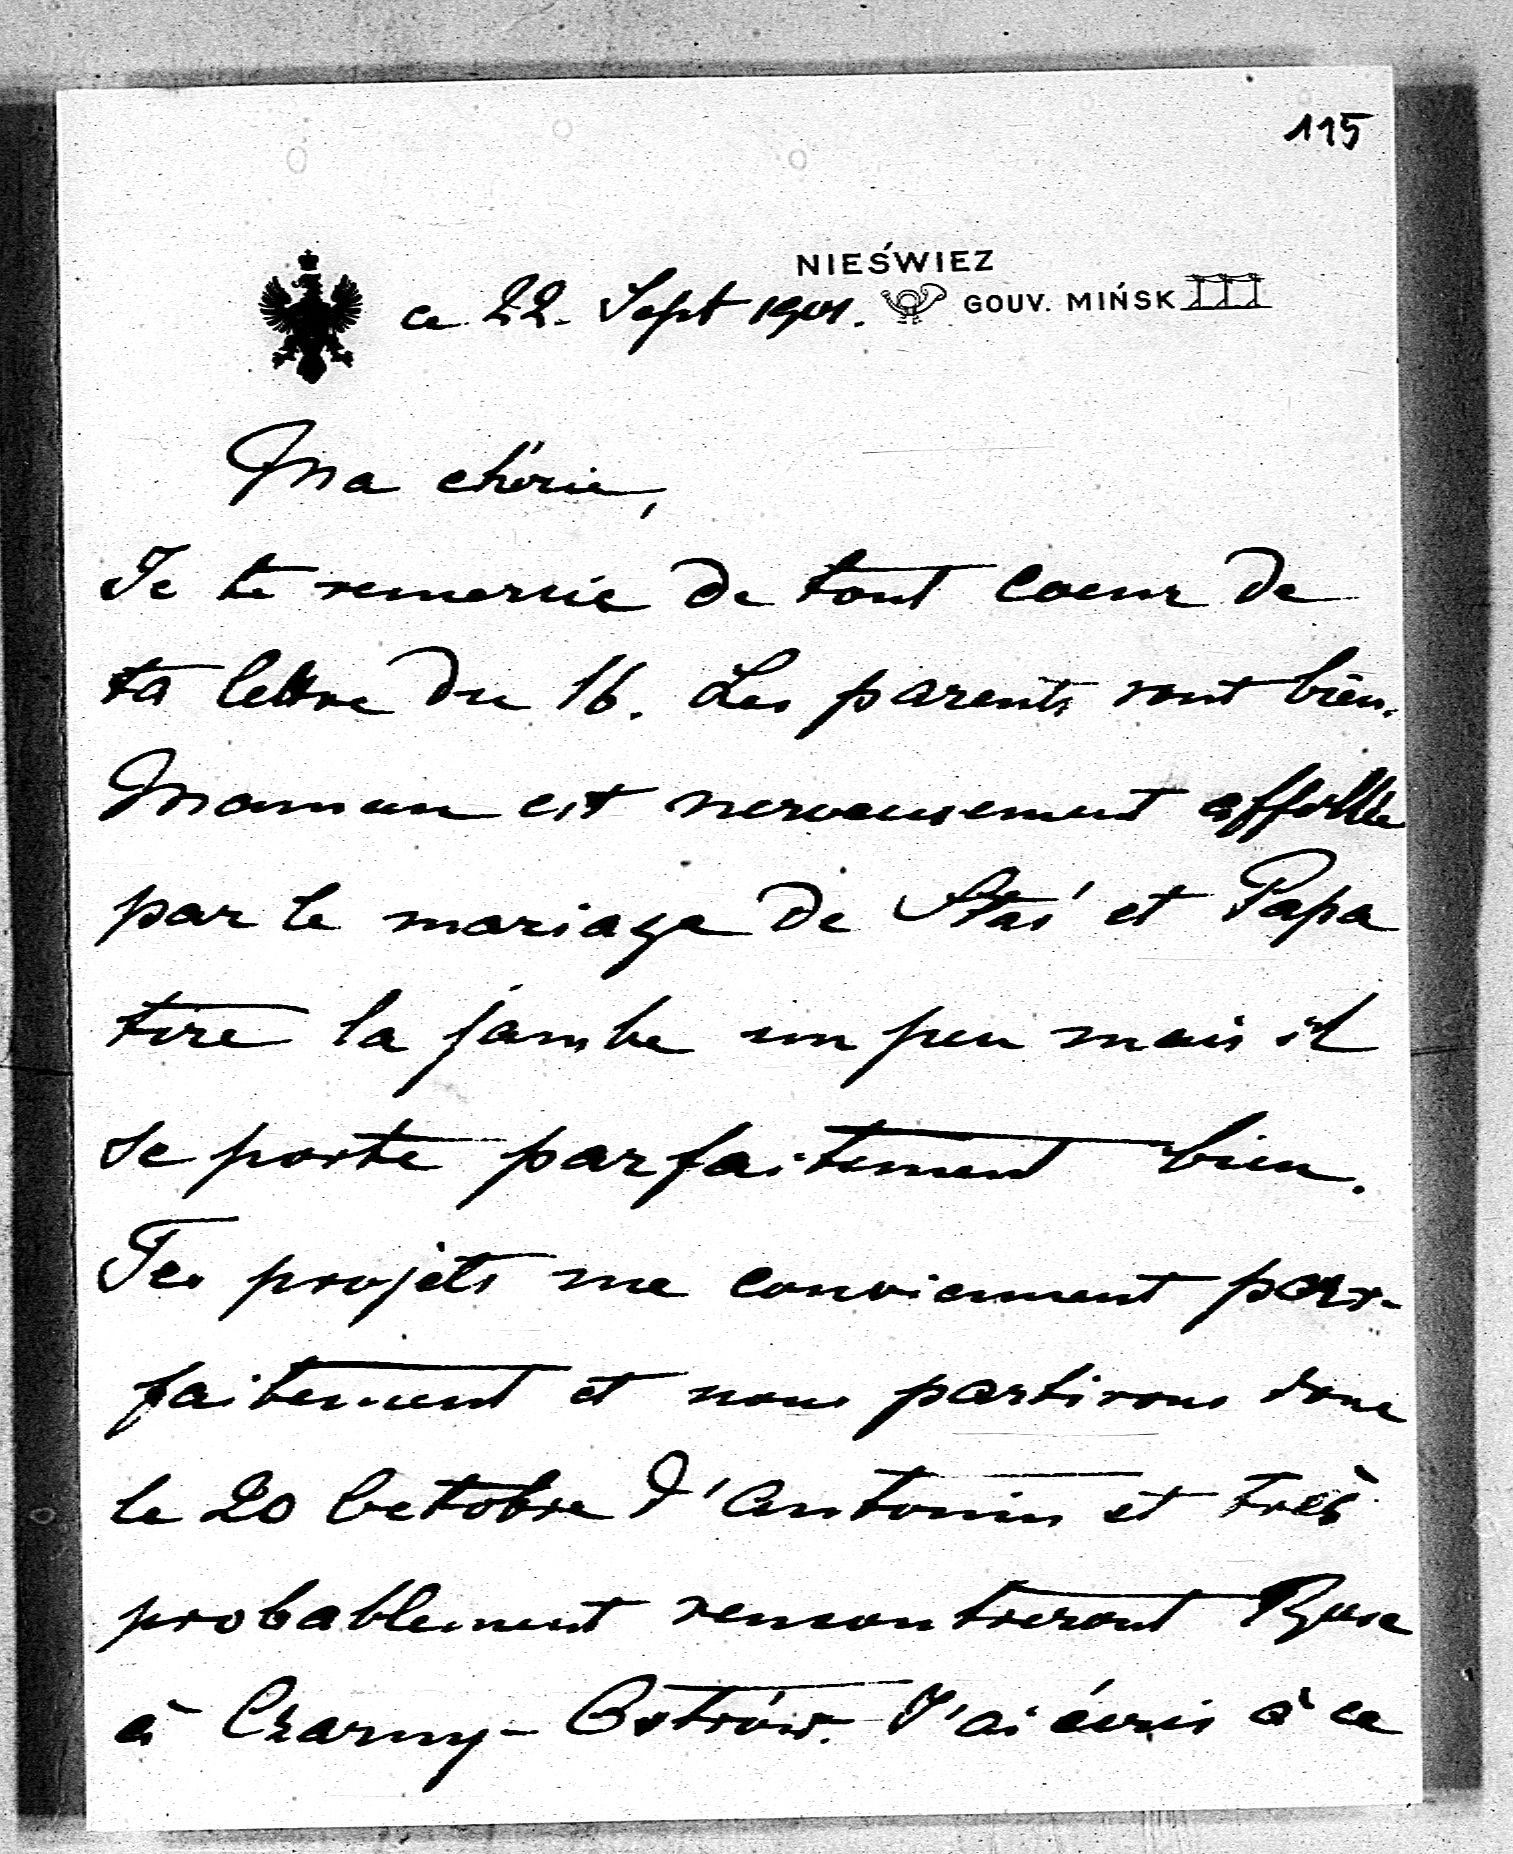 115
NIEŚWIEZ
GOUV. MIŃSK
ce 22. Sept 1901.
Ma chérie,
Je te remercie de tout coeur de
ta lettre du 16. Les parents vont bien.
Maman est nerveusement affollée
par le mariage de Staś et Papa
tire la jambe un peu mais il
se porte parfaitement bien.
Tes projets me conviennent par-
faitement et nous partirons donc
le 20 Octobre d'Antonin et très
probablement rencontreront
à Czarny-Ostrów. J'ai écris à ce